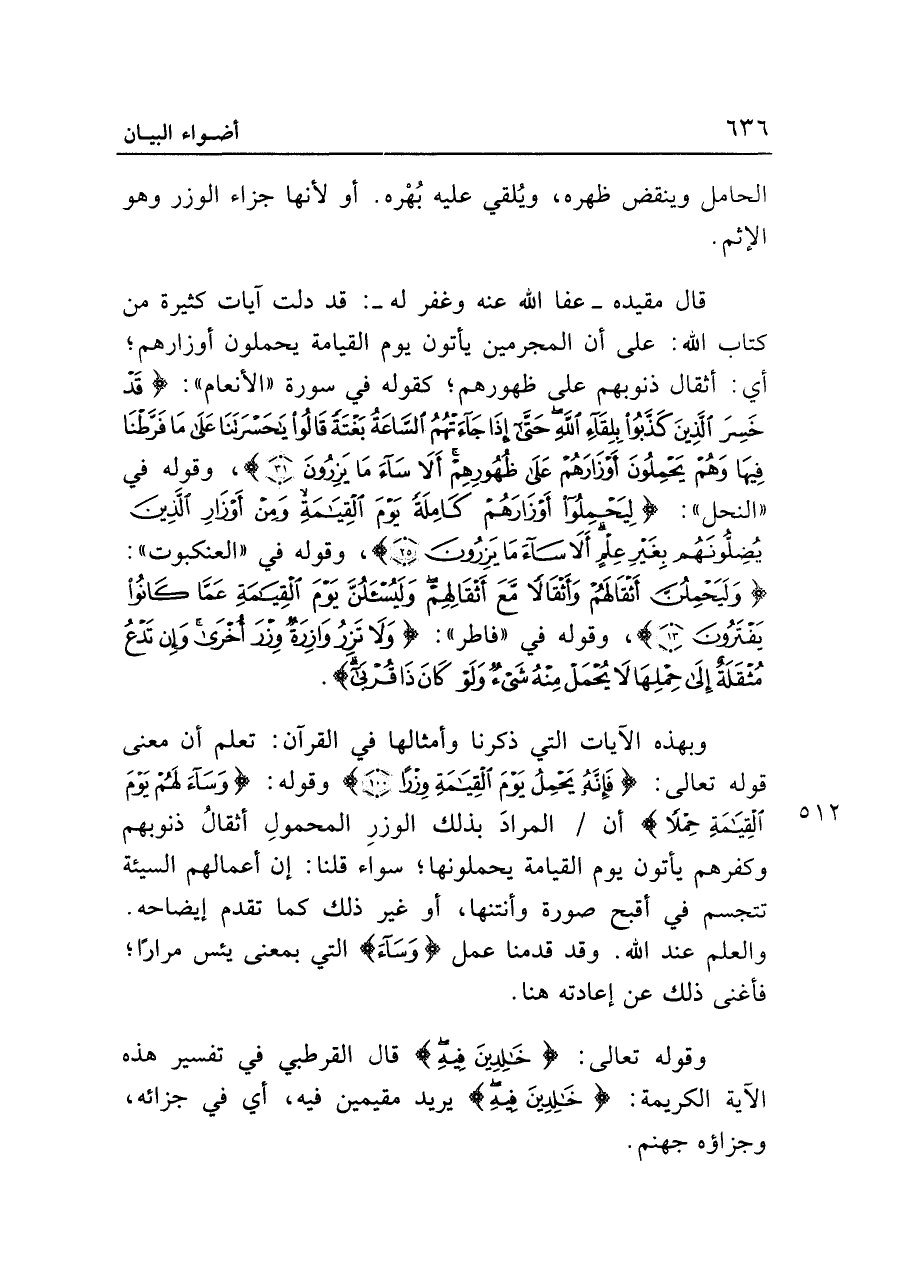 ٦٣٦ أضواء البيان
الحامل وينقض ظهره، ويُلقي عليه بُهْره. أو لأنها جزاء الوزر وهو
الإثم.
قال مقيده ـ عفا الله عنه وغفر له ـ: قد دلت آيات كثيرة من
كتاب الله: على أن المجرمين يأتون يوم القيامة يحملون أوزارهم؛
أي: أثقال ذنوبهم على ظهورهم؛ كقوله في سورة «الأنعام»: ﴿قَدْ
خَسِرَ ٱلَّذِينَ كَذَّبُوا۟ بِلِقَآءِ ٱللَّهِ ۖ حَتَّىٰٓ إِذَا جَآءَتْهُمُ ٱلسَّاعَةُ بَغْتَةً قَالُوا۟ يَٰحَسْرَتَنَا عَلَىٰ مَا فَرَّطْنَا
فِيهَا وَهُمْ يَحْمِلُونَ أَوْزَارَهُمْ عَلَىٰ ظُهُورِهِمْ ۚ أَلَا سَآءَ مَا يَزِرُونَ ٣١﴾، وقوله في
«النحل»: ﴿لِيَحْمِلُوٓا۟ أَوْزَارَهُمْ كَامِلَةً يَوْمَ ٱلْقِيَٰمَةِ ۙ وَمِنْ أَوْزَارِ ٱلَّذِينَ
يُضِلُّونَهُم بِغَيْرِ عِلْمٍ ۗ أَلَا سَآءَ مَا يَزِرُونَ ٢٥﴾، وقوله في «العنكبوت»:
﴿وَلَيَحْمِلُنَّ أَثْقَالَهُمْ وَأَثْقَالًا مَّعَ أَثْقَالِهِمْ ۖ وَلَيُسْـَٔلُنَّ يَوْمَ ٱلْقِيَٰمَةِ عَمَّا كَانُوا۟
يَفْتَرُونَ ١٣﴾، وقوله في «فاطر»: ﴿وَلَا تَزِرُ وَازِرَةٌ وِزْرَ أُخْرَىٰ ۚ وَإِن تَدْعُ
مُثْقَلَةٌ إِلَىٰ حِمْلِهَا لَا يُحْمَلْ مِنْهُ شَىْءٌ وَلَوْ كَانَ ذَا قُرْبَىٰٓ ۗ﴾.
وبهذه الآيات التي ذكرنا وأمثالها في القرآن: تعلم أن معنى
قوله تعالى: ﴿فَإِنَّهُۥ يَحْمِلُ يَوْمَ ٱلْقِيَٰمَةِ وِزْرًا ١٠٠﴾ وقوله: ﴿وَسَآءَ لَهُمْ يَوْمَ
ٱلْقِيَٰمَةِ حِمْلًا﴾ أن / المرادَ بذلك الوزرِ المحمولِ أثقالُ ذنوبهم ٥١٢
وكفرهم يأتون يوم القيامة يحملونها؛ سواء قلنا: إن أعمالهم السيئة
تتجسم في أقبح صورة وأنتنها، أو غير ذلك كما تقدم إيضاحه.
والعلم عند الله. وقد قدمنا عمل ﴿وَسَآءَ﴾ التي بمعنى يئس مرارًا؛
فأغنى ذلك عن إعادته هنا.
وقوله تعالى: ﴿خَٰلِدِينَ فِيهِ ۖ﴾ قال القرطبي في تفسير هذه
الآية الكريمة: ﴿خَٰلِدِينَ فِيهِ ۖ﴾ يريد مقيمين فيه، أي في جزائه،
وجزاؤه جهنم.